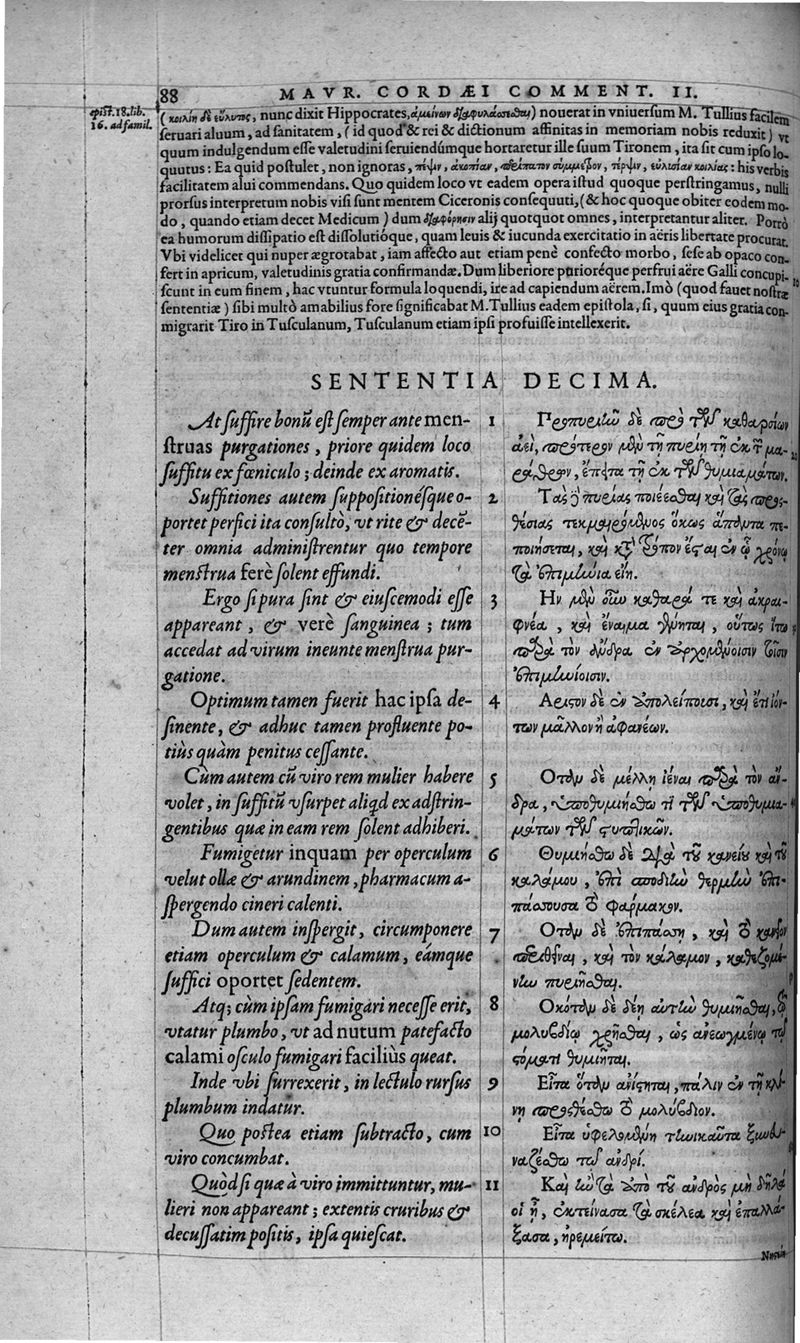 88 MAVR. CORDÆI COMMENT. II.
epist. 18. lib.
16. ad famil.
(κοιλίη δὲ εὔλυτος, nunc dixit Hippocrates, ἀμείνων διαφυλάσσεσθαι) nouerat in vniuersum M. Tullius facilem
seruari aluum, ad sanitatem, (id quod & rei & dictionum affinitas in memoriam nobis reduxit) vt
quum indulgendum esse valetudini seruiendúmque hortaretur ille suum Tironem, ita sit cum ipso lo-
quutus: Ea quid postulet, non ignoras, πέψιν, ἀκοπίαν, περίπατον σύμμετρον, τέρψιν, εὐλυσίαν κοιλίας: his verbis
facilitatem alui commendans. Quo quidem loco vt eadem opera istud quoque perstringamus, nulli
prorsus interpretum nobis visi sunt mentem Ciceronis consequuti, (& hoc quoque obiter eodem mo-
do, quando etiam decet Medicum) dum διαφόρησιν alij quotquot omnes, interpretantur aliter. Porrò
ea humorum dissipatio est dissolutióque, quam leuis & iucunda exercitatio in aëris libertate procurat.
Vbi videlicet qui nuper ægrotabat, iam affecto aut etiam penè confecto morbo, sese ab opaco con-
fert in apricum, valetudinis gratia confirmandæ. Dum liberiore purioréque perfrui aëre Galli concupi-
scunt in eum finem, hac vtuntur formula loquendi, ire ad capiendum aërem. Imò (quod fauet nostræ
sententiæ) sibi multò amabilius fore significabat M. Tullius eadem epistola, si, quum eius gratia com-
migrarit Tiro in Tusculanum, Tusculanum etiam ipsi profuisse intellexerit.
SENTENTIA DECIMA.
At suffire bonũ est semper ante men-
struas purgationes, priore quidem loco
suffitu ex fœniculo; deinde ex aromatis.
Suffitiones autem suppositionésque o-
portet perfici ita consultò, vt rite & decẽ-
ter omnia administrentur quo tempore
menstrua ferè solent effundi.
Ergo si pura sint & eiuscemodi esse
appareant, & verè sanguinea; tum
accedat ad virum ineunte menstrua pur-
gatione.
Optimum tamen fuerit hac ipsa de-
sinente, & adhuc tamen profluente po-
tiùs quàm penitus cessante.
Cùm autem cũ viro rem mulier habere
volet, in suffitũ vsurpet aliqd ex adstrin-
gentibus quæ in eam rem solent adhiberi.
Fumigetur inquam per operculum
velut ollæ & arundinem, pharmacum a-
spergendo cineri calenti.
Dum autem inspergit, circumponere
etiam operculum & calamum, eámque
suffici oportet sedentem.
Atq; cùm ipsam fumigari necesse erit,
vtatur plumbo, vt ad nutum patefacto
calami osculo fumigari faciliùs queat.
Inde vbi surrexerit, in lectulo rursus
plumbum indatur.
Quo postea etiam subtracto, cum
viro concumbat.
Quòd si quæ à viro immittuntur, mu-
lieri non appareant; extentis cruribus &
decussatim positis, ipsa quiescat.
1
2
3
4
5
6
7
8
9
10
11
Προπυριῶν δὲ πρὸ τῶν καθαρσίων
ἀεὶ, πρότερον μὲν τῇ πυρίῃ τῇ ἐκ τῶν μα-
ράθρων, ἔπειτα τῇ ἐκ τῶν θυμιαμάτων.
Τὰς δὲ πυρίας ποιέεσθαι καὶ τὰς προς-
θέσιας τεκμαιρόμενος ὅκως ἅπαντα πε-
ποιήσεται, καὶ κατὰ τρόπον ἔσται ἐν ᾧ χρόνῳ
τὰ ἐπιμήνια εἴη.
Ην μὲν οὖν καθαρά τε καὶ ἀκραι-
φνέα, καὶ ἔναιμα γίνηται, οὕτως ἴτω
παρὰ τὸν ἄνδρα ἐν ἀρχομένοισιν τοῖσιν
ἐπιμηνίοισιν.
Αριστον δὲ ἐν ἀπολείπουσι, καὶ ἔτι ἰόν-
των μᾶλλον ἢ ἀφανέων.
Οταν δὲ μέλλῃ ἰέναι παρὰ τὸν ἄν-
δρα, ὑποθυμιήσθω τι τῶν ὑποθυμια-
μάτων τῶν στυπτικῶν.
Θυμιήσθω δὲ διὰ τοῦ κανείου καὶ τοῦ
καλάμου, ἐπὶ σποδιὴν θερμὴν ἐπι-
πάσσουσα τὸ φάρμακον.
Οταν δὲ ἐπιπάσῃ, καὶ τὸ κανεῖον
περιθεῖναι, καὶ τὸν κάλαμον, καθεζομέ-
νην πυριῆσθαι.
Οκόταν δὲ δέῃ αὐτὴν θυμιῆσθαι, τῷ
μολυβδίῳ χρῆσθαι, ὡς ἀνεωγμένῳ τῷ
στόματι θυμιῆται.
Εἶτα ὅταν ἀνίστηται, πάλιν ἐν τῇ κλί-
νῃ προσθέσθω τὸ μολύβδιον.
Εἶτα ὑφελομένη τηνικαῦτα ξυνευ-
ναζέσθω τῷ ἀνδρί.
Καὶ ἢν τὰ ἀπὸ τοῦ ἀνδρὸς μὴ δῆλά
οἱ ᾖ, ἐκτείνασα τὰ σκέλεα καὶ ἐπαλλά-
ξασα, ἠρεμείτω.